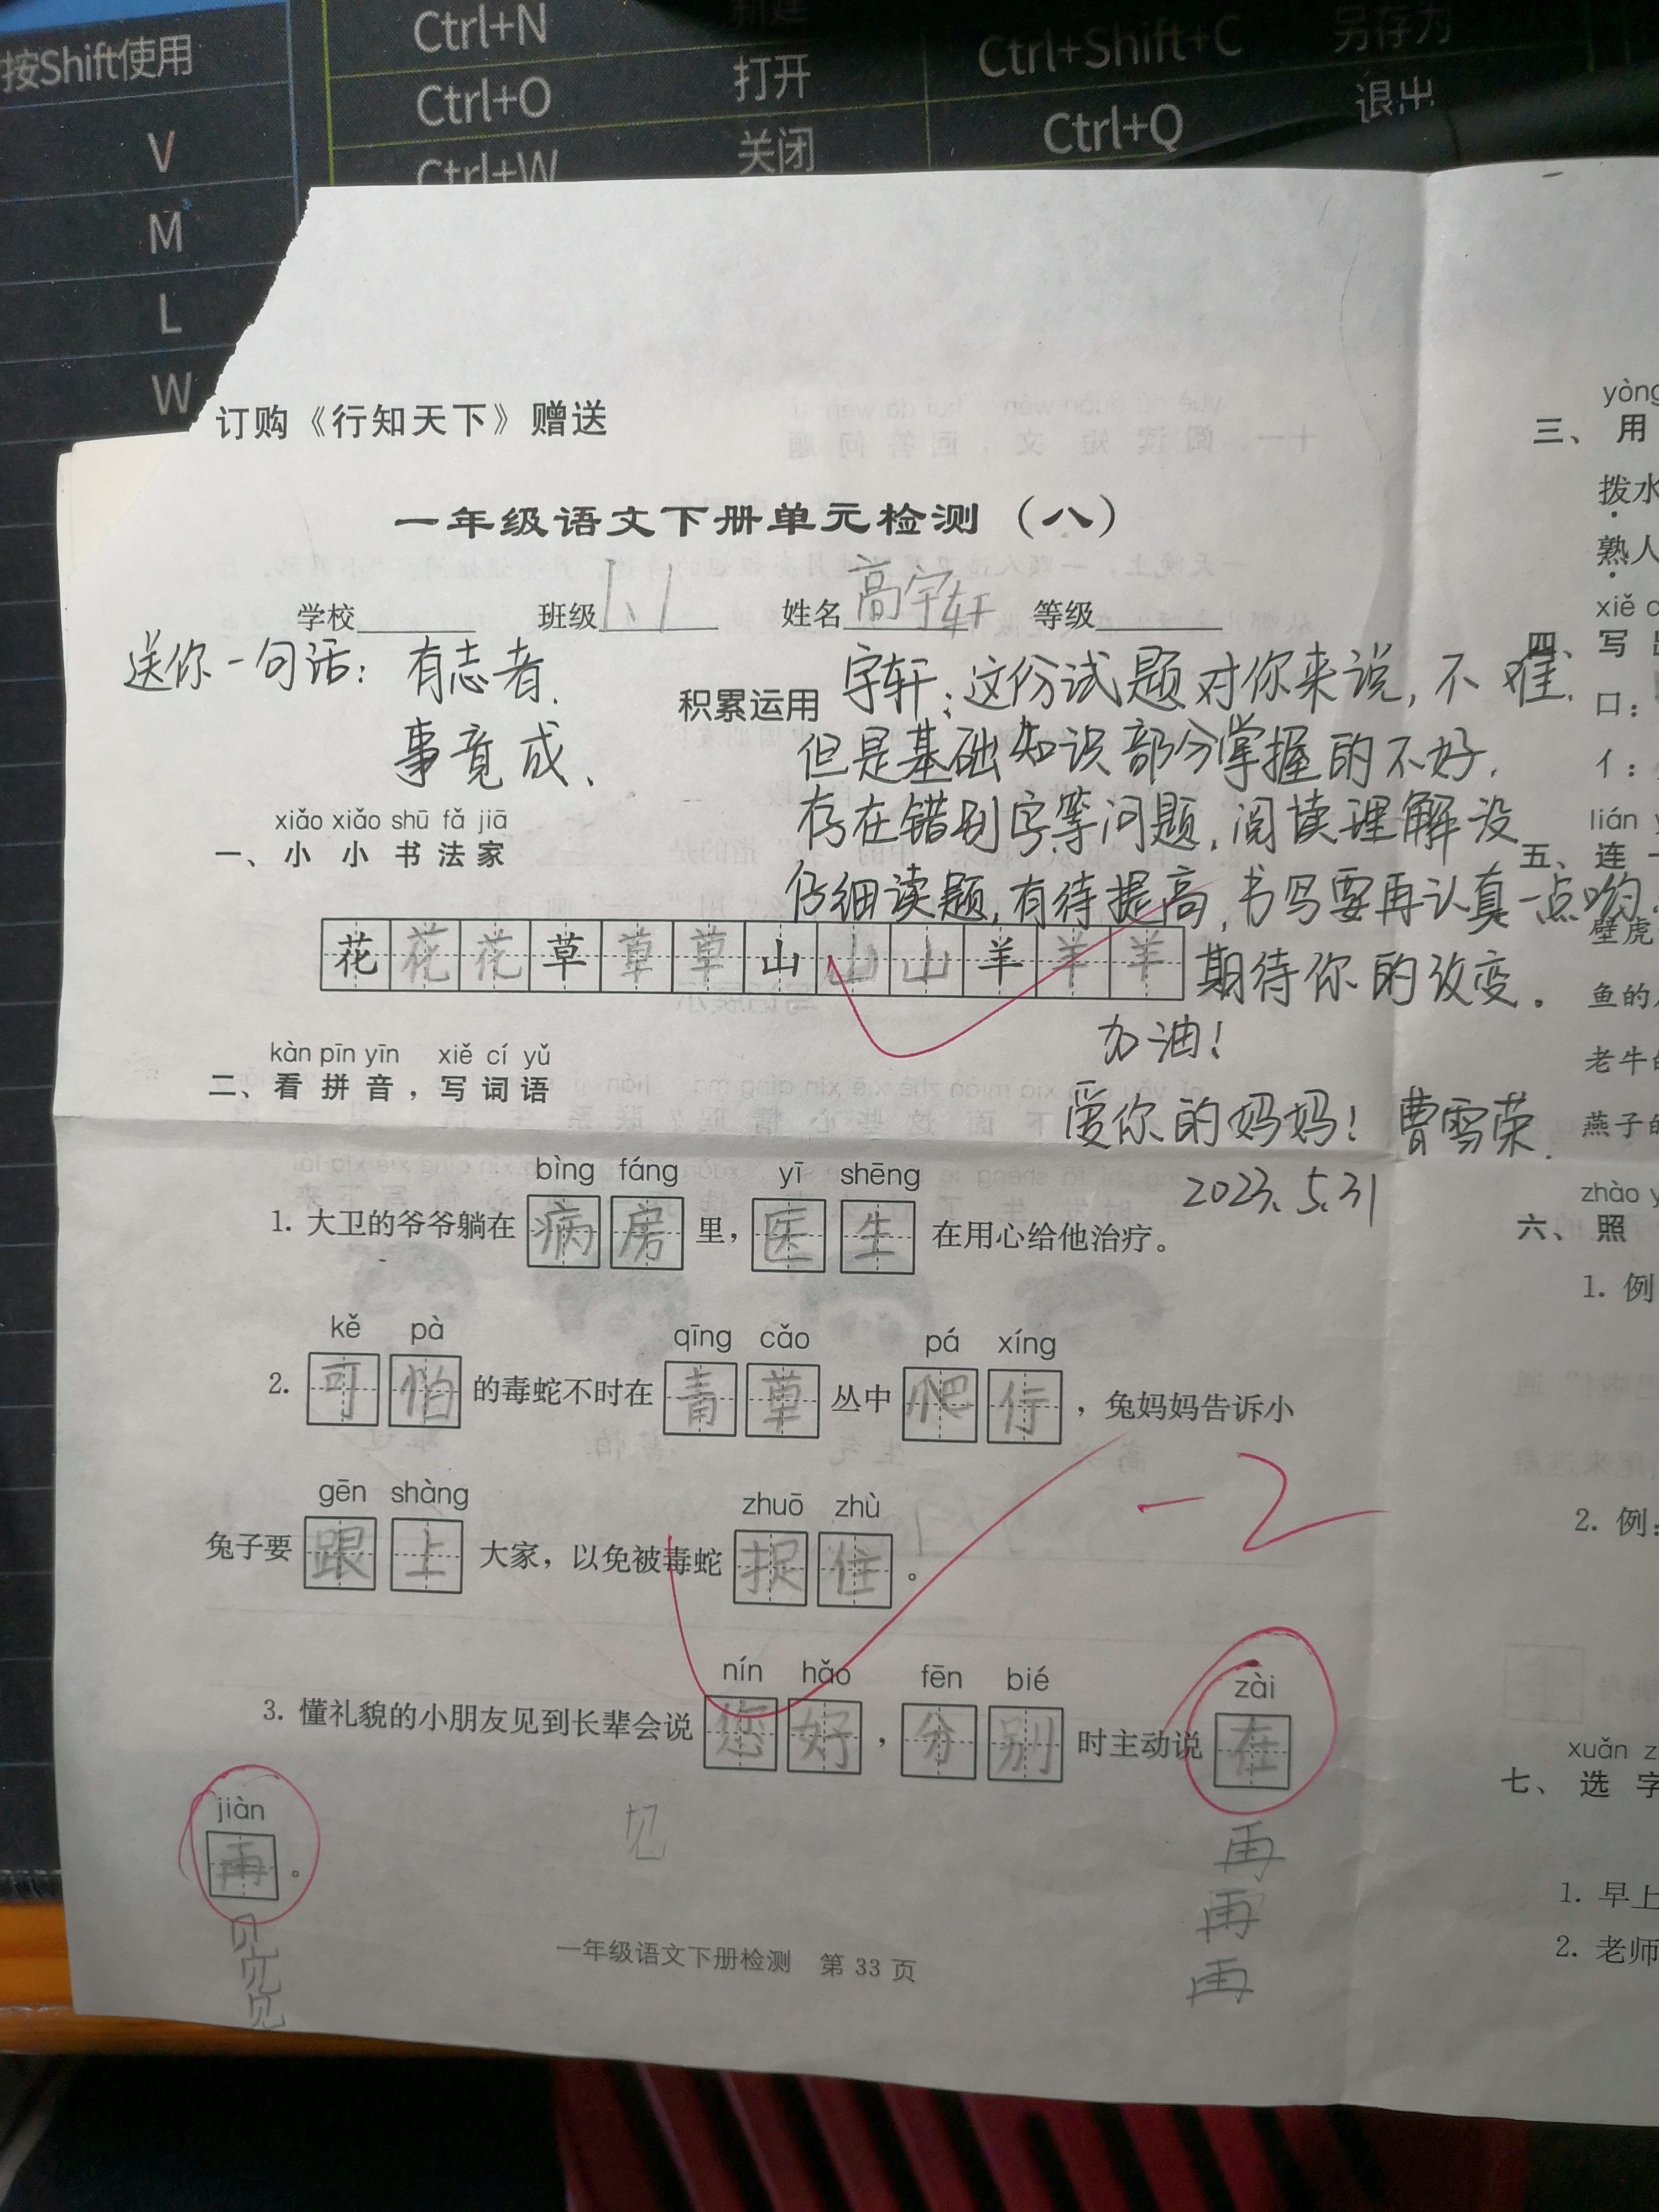 按Shift使用
V
M
L
W
Ctrl+N 新建
Ctrl+O 打开
Ctrl+W 关闭
Ctrl+Shift+C 另存为
Ctrl+Q 退出
订购《行知天下》赠送
一年级语文下册单元检测（八）
学校 班级 姓名高宇轩 等级
送你一句话：有志者.
事竟成、
积累运用
宇轩：这份试题对你来说，不难.
但是基础知识部分掌握的不好.
存在错别字等问题，阅读理解没
仔细读题，有待提高，书写要再认真一点哟.
期待你的改变。
加油！
爱你的妈妈！曹雪荣.
2023.5.31
xiǎo xiǎo shū fǎ jiā
一、小小书法家
花花花草草草山山山羊羊羊
kàn pīn yīn xiě cí yǔ
二、看拼音，写词语
bìng fáng yī shēng
1. 大卫的爷爷躺在病房里，医生在用心给他治疗。
kě pà qīng cǎo pá xíng
2. 可怕的毒蛇不时在青草丛中爬行，兔妈妈告诉小
gēn shàng zhuō zhù
兔子要跟上大家，以免被毒蛇捉住。
-2
nín hǎo fēn bié zài
3. 懂礼貌的小朋友见到长辈会说您好，分别时主动说在
jiàn
再。
见
见
见
见
再
再
再
一年级语文下册检测 第 33 页
yòng
三、用
拨水
熟人
xiě
四、写
口：
亻：
lián
五、连
壁虎
鱼的
老牛的
燕子的
zhào
六、照
1. 例
2. 例：
xuǎn
七、选字
1. 早上
2. 老师